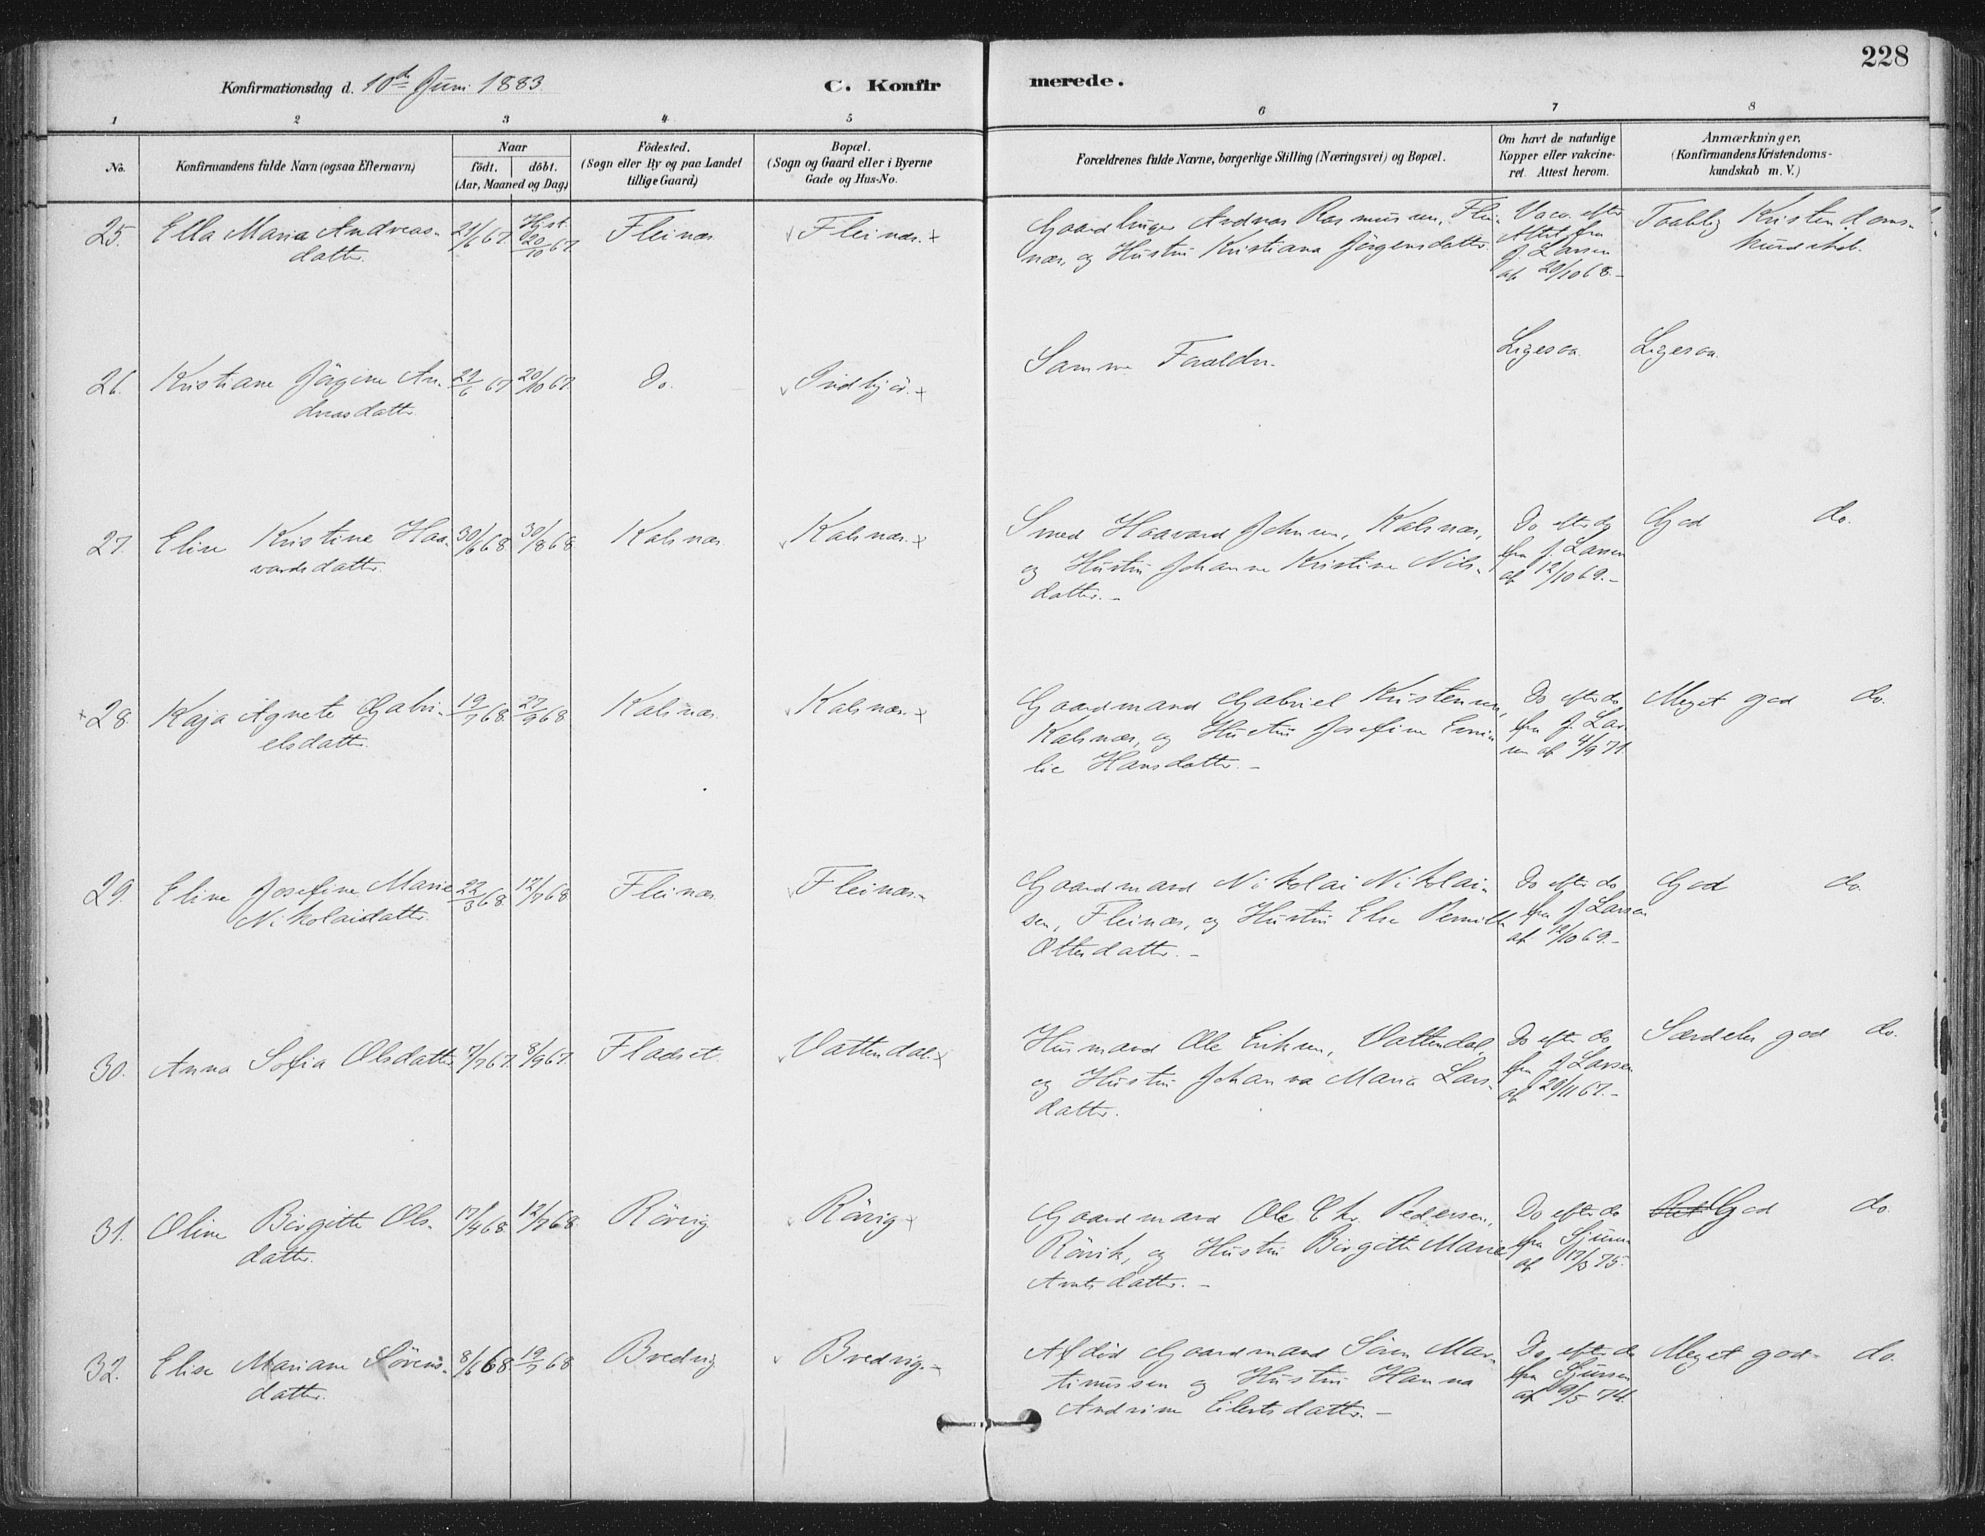 228
Konfirmationsdag d. 10de Juni 1883.
C. Konfirmerede.
1 2 3 4 5 6 7 8
No.
Konfirmandens fulde Navn (ogsaa Efternavn)
Naar
födt. döbt.
(Aar, Maaned og Dag)
Födested.
(Sogn eller By og paa Landet
tillige Gaard)
Bopæl.
(Sogn og Gaard eller i Byerne
Gade og Hus-No.
Forældrenes fulde Navne, borgerlige Stilling (Næringsvei) og Bopæl.
Om havt de naturlige
Kopper eller vakcine-
ret. Attest herom.
Anmærkninger,
(Konfirmandens Kristendoms-
kundskab m. V.)
25. Ella Maria Andreas-
datter.
Hjst.
20/10 67.
Fleines
Fleines.
Gaardbruger Andreas Rasmussen, Flei-
nes, og Hustru Kristiana Jörgensdatter.
Vacc. efter
Attest fra
J. Larsen
af 20/10 68.-
Taalelig Kristendoms-
kundskab.
26. Kristiane Jörgine An-
dreasdatter.
29/6 67 20/10 67.
Do.
Samme Forældre.
Ligesaa.
Ligesaa.
27. Eline Kristine Haa-
vardsdatter.
30/6 68 30/8 68
Kalsnes
Kalsnes.
Smed Haavard Johnsen, Kalsnes,
og Hustru Johanna Kristine Nils-
datter.-
Do efter do
fra J. Larsen
af 12/10 69.-
God do.
28. Kaja Agnete Gabri-
elsdatter.
19/7 68 27/9 68
Kalsnes
Kalsnes.
Gaardmand Gabriel Kristensen,
Kalsnes, og Hustru Josefine Emi-
lie Hansdatter.-
Do efter do
fra J. Lar-
sen af 4/9 71.
Meget god do.
29. Eline Josefine Marie
Nikolaidatter.
22/3 68 12/7 68
Fleines
Fleines.
Gaardmand Nikolai Nikolai-
sen, Fleines, og Hustru Else Pernille
Ottersdatter.-
Do efter do
fra J. Larsen
af 12/10 69.-
God do.
30. Anna Sofia Olsdatter
7/7 67. 8/9 67.
Fladset
Vattendal.
Husmand Ole Eriksen, Vattendal,
og Hustru Johanna Maria Lars-
datter.
Do efter do
fra J. Larsen
af 20/11 67.-
Særdeles god do.
31. Oline Birgitte Ols-
datter.
17/4 68 12/7 68
Rövig
Rövig
Gaardmand Ole Chr. Pedersen,
Rövik, og Hustru Birgitte Marie
Arntsdatter.-
Do efter do
fra
af 17/3 75.
God do.
32. Elise Mariane Sörens-
datter.
8/6 68 19/7 68
Bredvig
Bredvig.
Afdöd Gaardmand Sören Mar-
tinussen og Hustru Hanna
Andrine Eilertsdatter.-
Do efter do
fra
af 19/5 74.
Meget god- do.